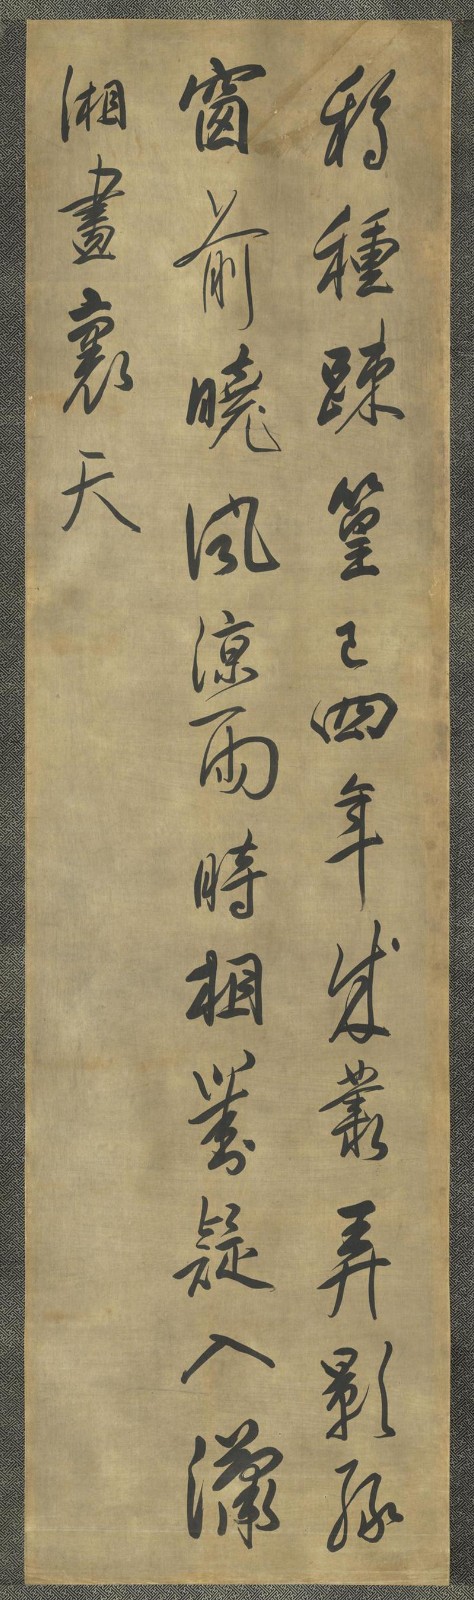 移種踈篁已四年成叢弄影綠
窗前曉風涼雨時相對疑入瀟
湘畫裏天